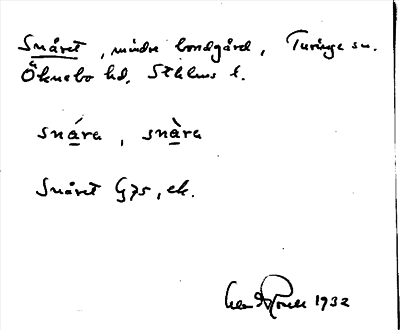 Snåret, mindre bondgård, Turinge sn.
Öknebo hd, Sthlms l.
snára, snàra
Snåret G75, ek.
1932